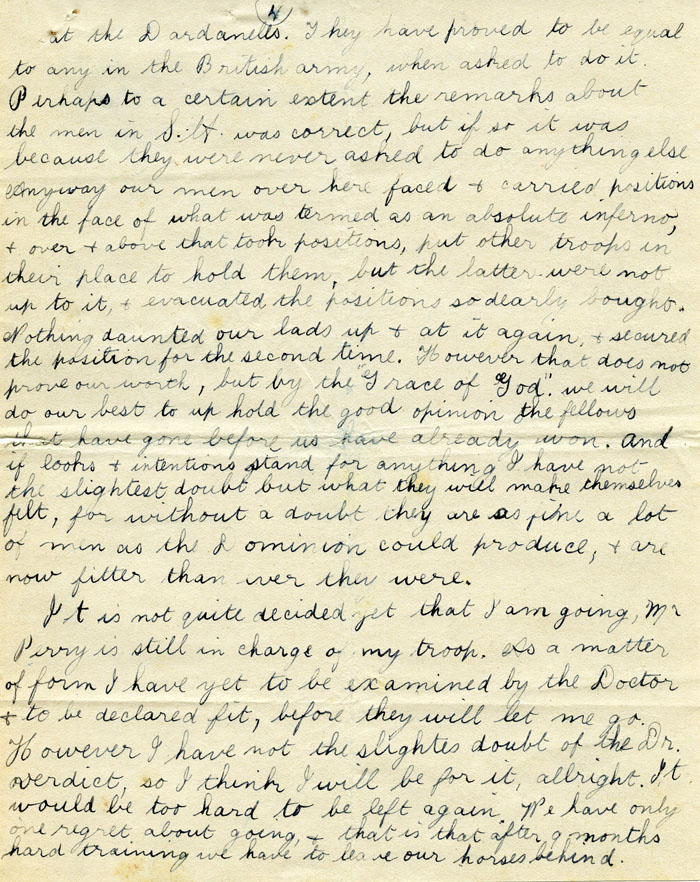 4
at the Dardanells. They have proved to be equal
to any in the British army, when asked to do it.
Perhaps to a certain extent the remarks about
the men in S.H. was correct, but if so it was
because they were never asked to do anything else
Anyway our men over here faced + carried positions
in the face of what was termed as an absolute inferno,
+ over + above that took positions, put other troops in
their place to hold them, but the latter were not
up to it, + evacuated the positions so dearly bought.
Nothing daunted our lads up + at it again, + secured
the position for the second time. However that does not
prove our worth, but by the "Grace of God". we will
do our best to up hold the good opinion the fellows
that have gone before us have already won. And
if looks + intentions stand for anything I have not
the slightest doubt but what they will make themselves
felt, for without a doubt they are as fine a lot
of men as the Dominion could produce, + are
now fitter than ever they were.
It is not quite decided yet that I am going, Mr
Perry is still in charge of my troop. As a matter
of form I have yet to be examined by the Doctor
+ to be declared fit, before they will let me go.
However I have not the slightes doubt of the Dr.
verdict, so I think I will be for it, allright. It
would be too hard to be left again. We have only
one regret about going, + that is that after 9 months
hard training we have to leave our horses behind.